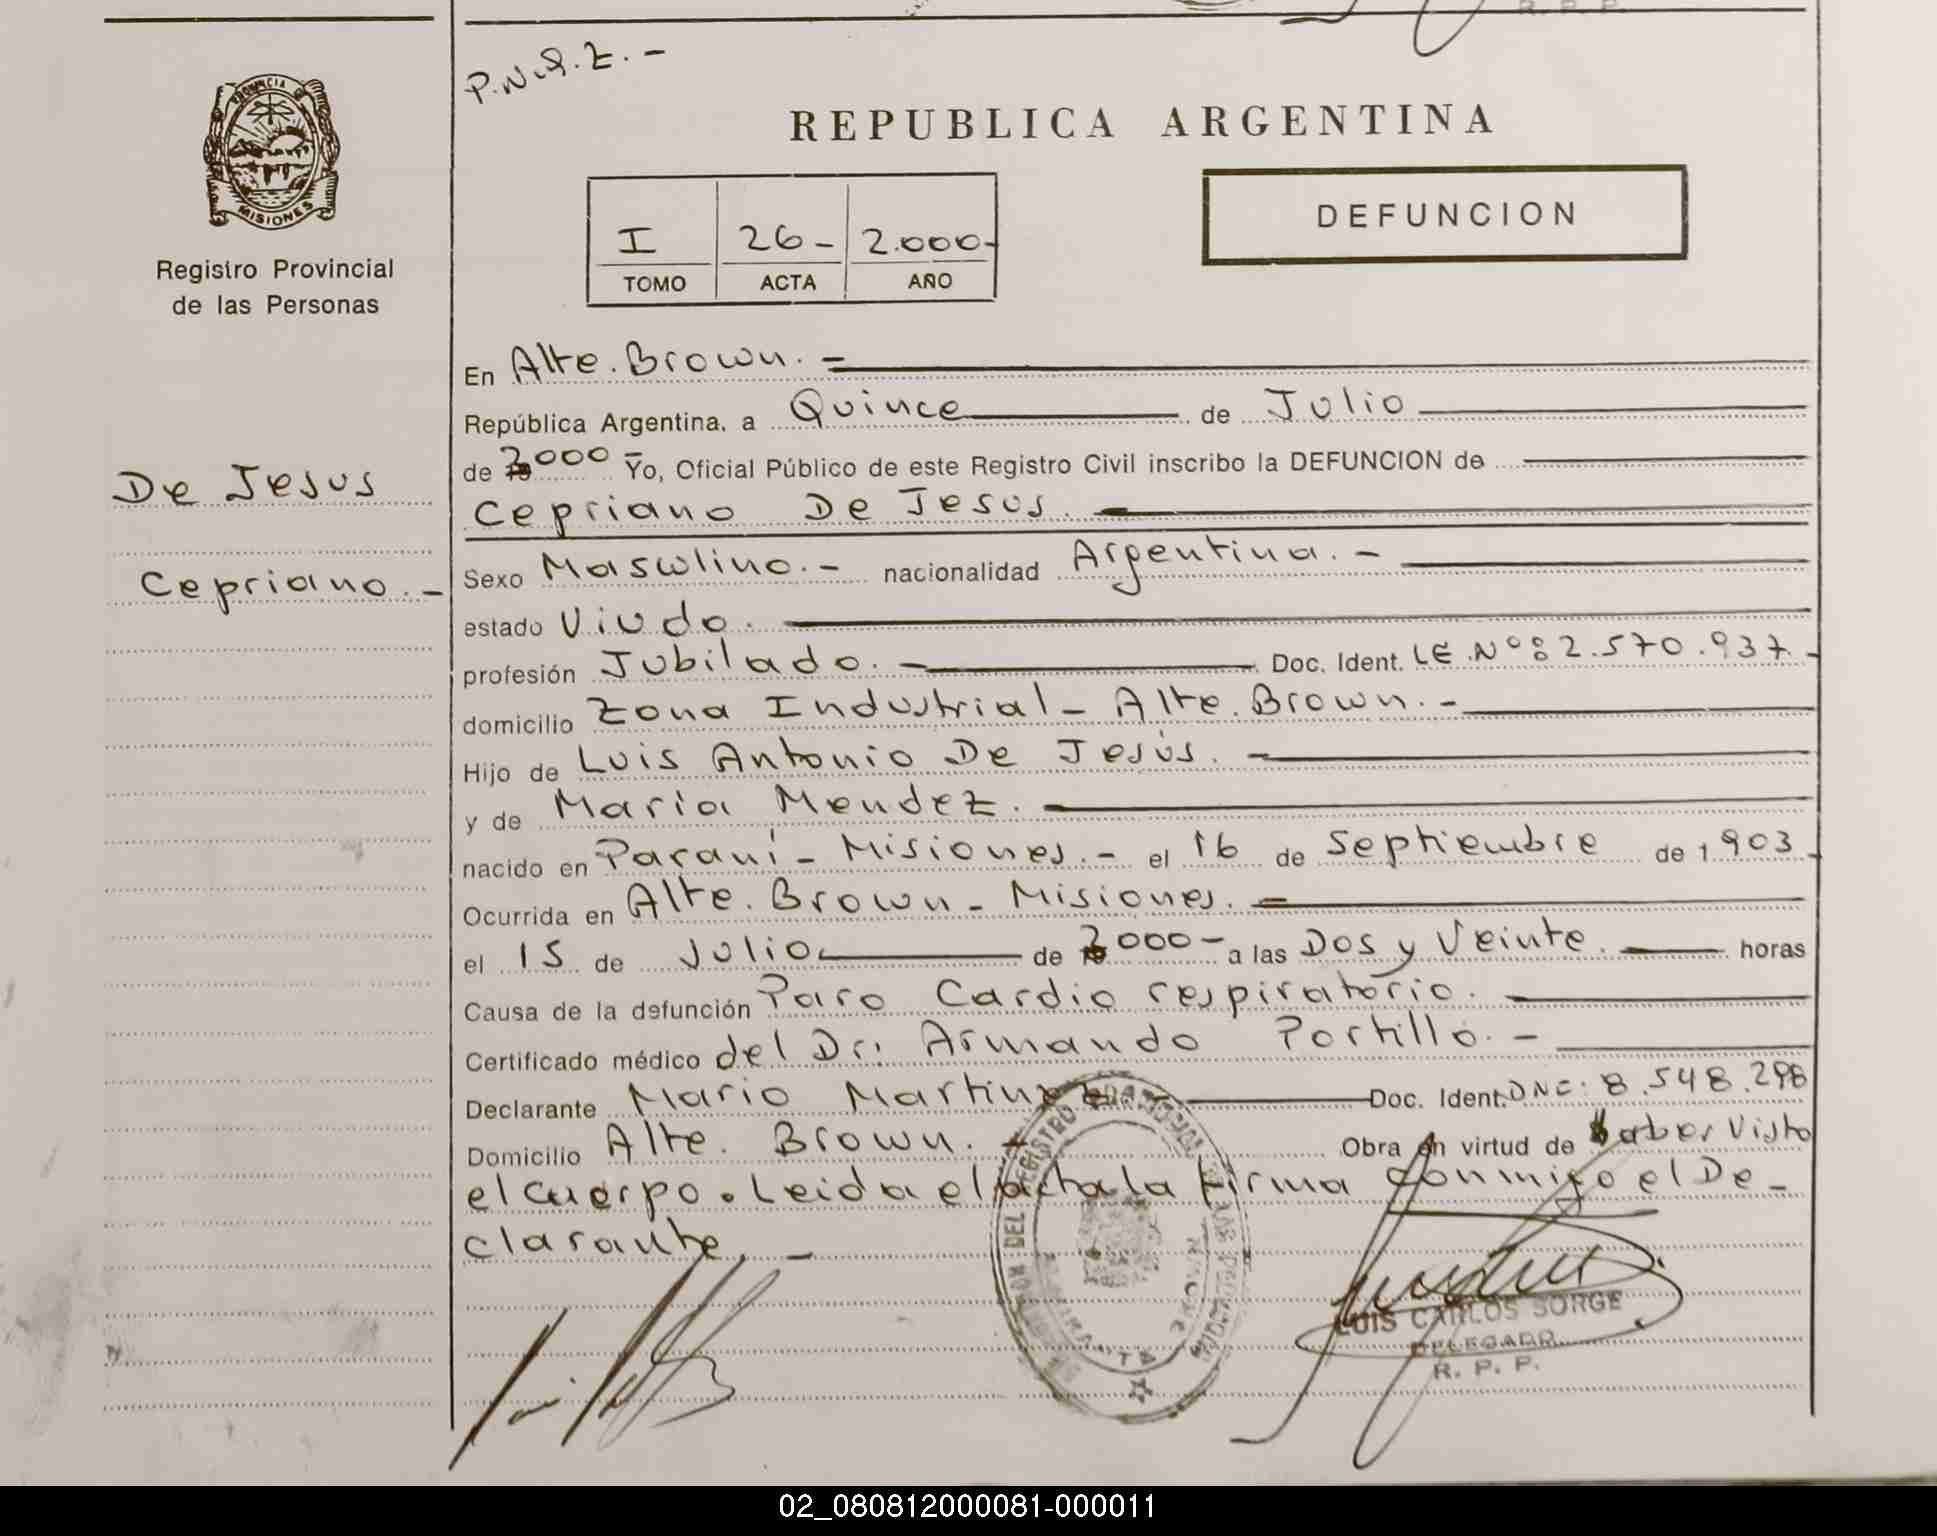 P.N.S.Z. -
REPUBLICA ARGENTINA
PROVINCIA DE
MISIONES
Registro Provincial
de las Personas
DEFUNCION
I 26- 2.000-
TOMO ACTA AÑO
De Jesus
Cepriano.-
En Alte. Brown. -
República Argentina, a Quince de Julio
de 2000 Yo, Oficial Público de este Registro Civil inscribo la DEFUNCION de
Cepriano De Jesus. -
Sexo Masculino.- nacionalidad Argentina.-
estado Viudo.
profesión Jubilado. - Doc. Ident. LE.Nº: 2.570.937.-
domicilio Zona Industrial - Alte. Brown.-
Hijo de Luis Antonio De Jesús. -
y de Maria Mendez. -
nacido en Paraní - Misiones.- el 16 de Septiembre de 1903.
Ocurrida en Alte. Brown - Misiones. -
el 15 de Julio de 2000- a las Dos y Veinte. horas
Causa de la defunción Paro Cardio respiratorio. -
Certificado médico del Dr: Armando Portillo. -
Declarante Mario Martinez Doc. Ident. DNE: 8.548.298
Domicilio Alte. Brown. - Obra en virtud de haber Visto
el cuerpo. Leida el acta la firma conmigo el De-
clarante. -
LUIS CARLOS SORGE
DELEGADO
R. P. P.
02_080812000081-000011